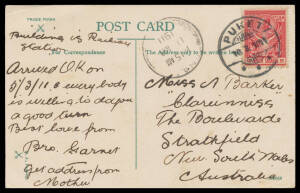 TRADE MARK
POST CARD
For Correspondence
The Address Only
Building is Railway
Station
Arrived O.K on
5/3/11. everybody
is willing to do you
a good turn
Best love from
Bro. Garnet
get address from
Mother
PUKETTE
Miss N Barker
Clareinnes
The Boulevarde
Strathfield
New South Wales
Australia